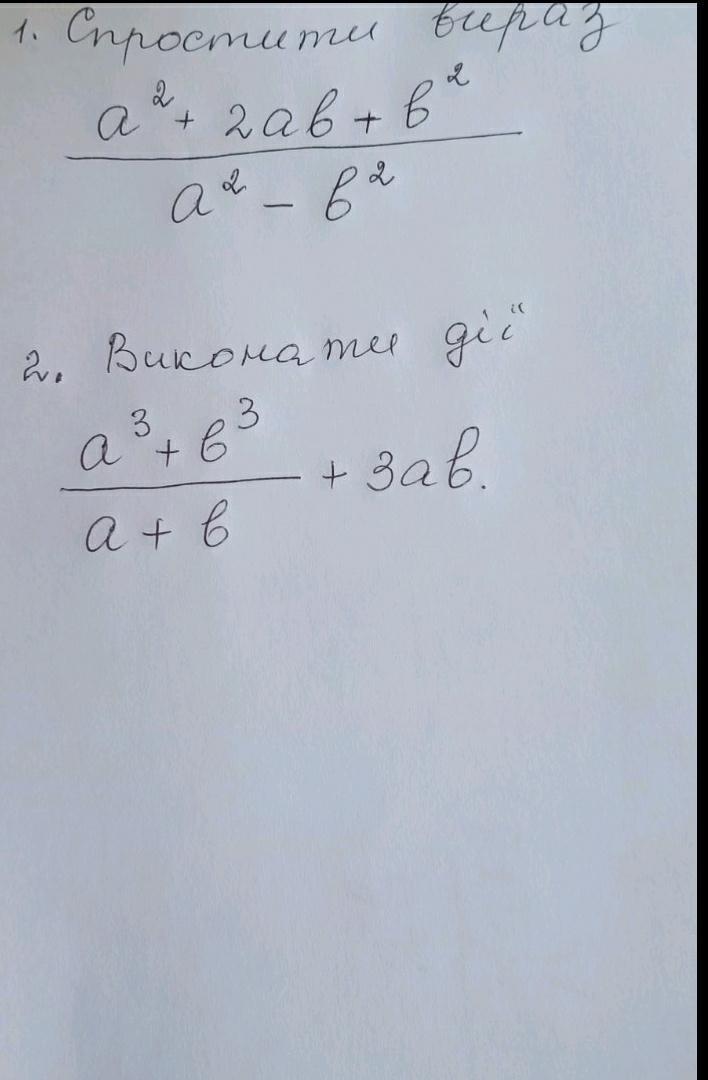 1. Спростити вираз
a² + 2ab + b²
a² - b²
2. Виконати дії
a³ + b³
a + b
+ 3ab.